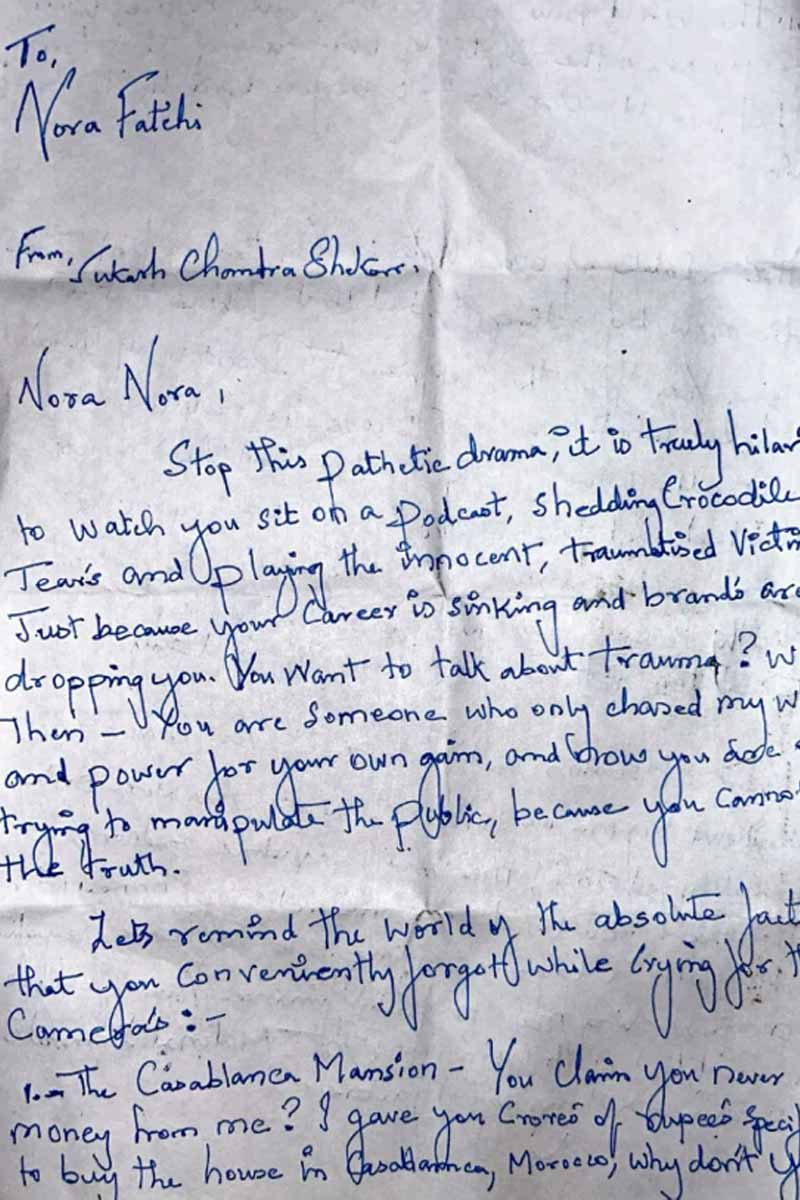 To,
Nora Fatehi
From, Sukash Chandra Shekar.
Nora Nora,
Stop this pathetic drama, it is truely hilar
to watch you sit on a podcast, shedding Crocodile
Tears and playing the innocent, traumatised Victim
Just because your Career is sinking and brands are
dropping you. You Want to talk about trauma? W
Then - You are Someone who only chased my w
and power for your own gain, and now you are
trying to manipulate the public, because you Canno
the truth.
Lets remind the world of the absolute fact
that you Conveniently forgot while Crying for th
Camera's :-
1.- The Casablanca Mansion - You claim you never
money from me? I gave you Crores of rupees Speci
to buy the house in Casablanca, Morocco, why don't y